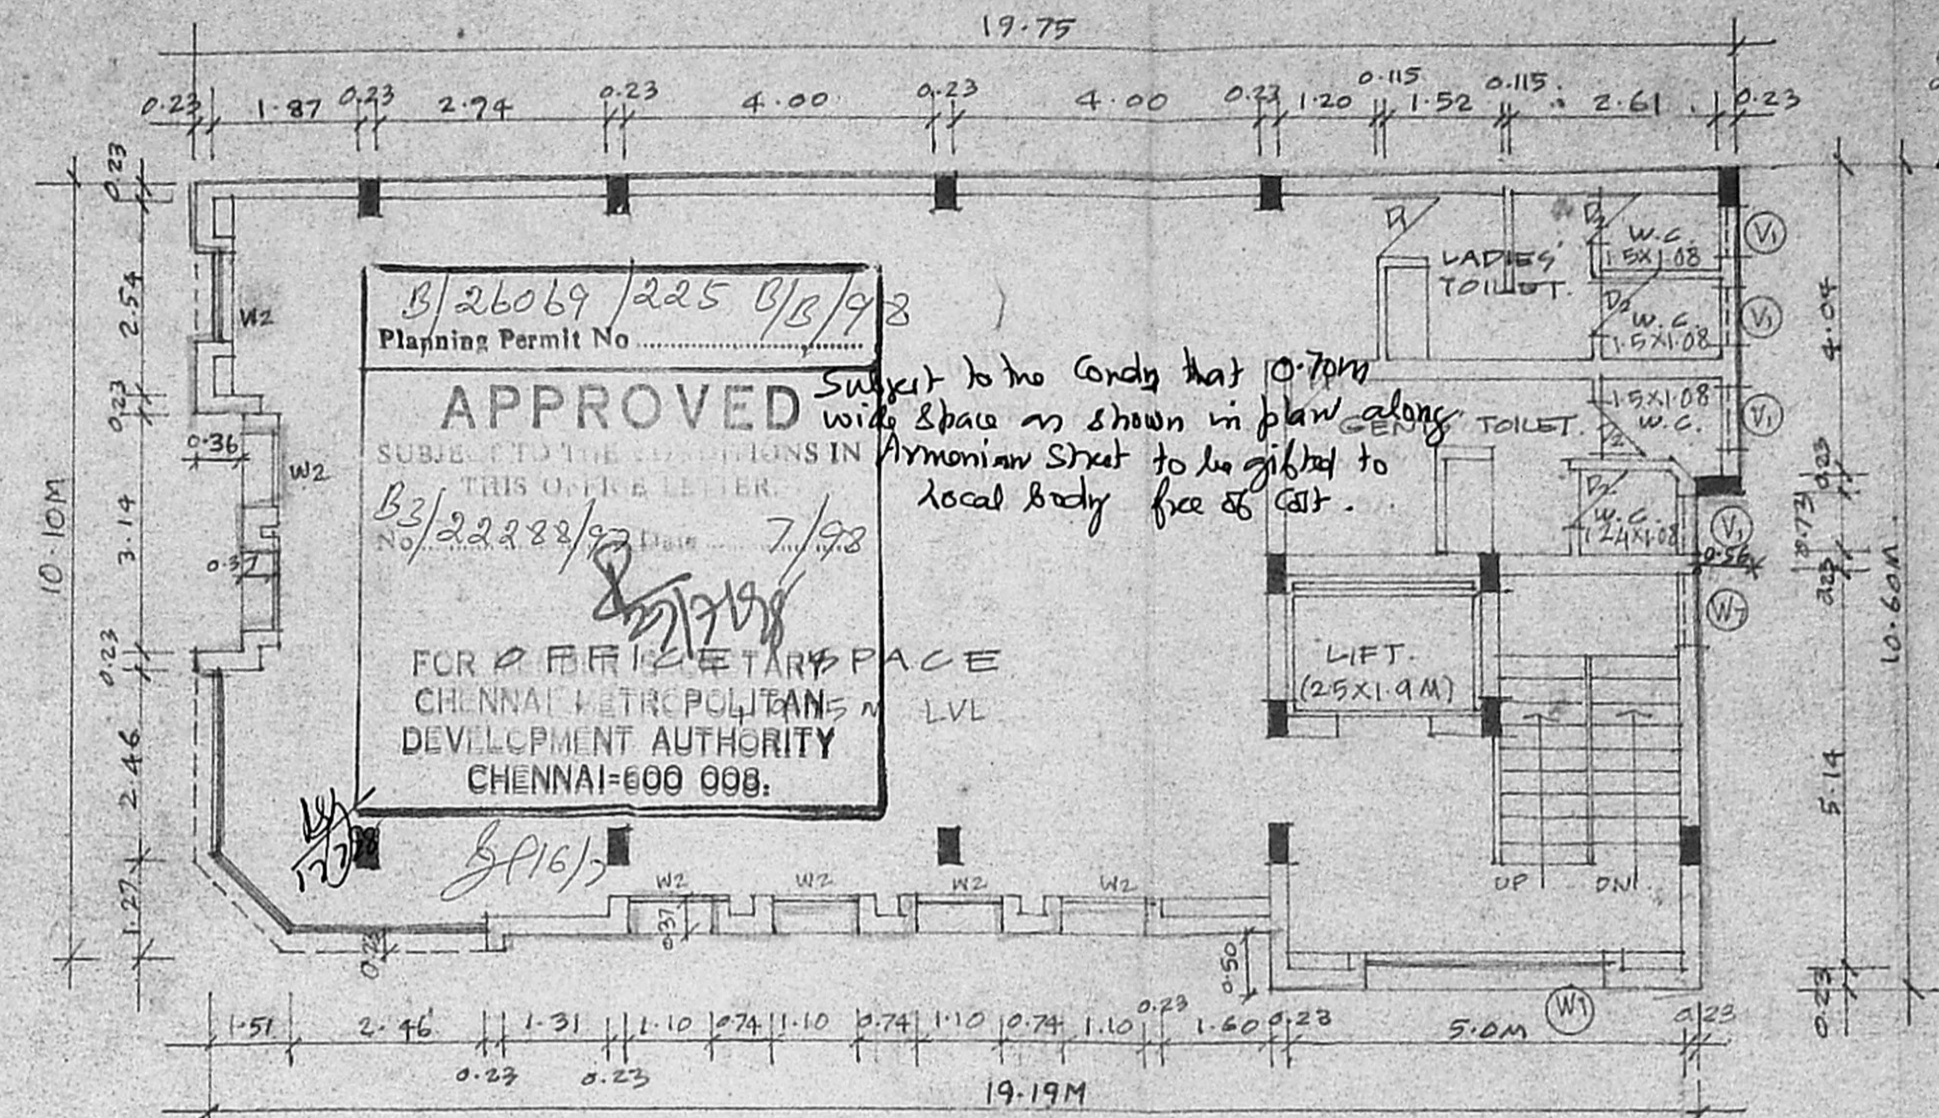 19.75
0.23 1.87 0.23 2.94 0.23 4.00 0.23 4.00 0.23 1.20 0.115 1.52 0.115 2.61 0.23
0.23
2.54
0.23
0.36
3.14
0.37
0.23
2.46
1.27
10.10M
W2
W2
B/26069/225 B/B/98
Planning Permit No
APPROVED
SUBJECT TO THE CONDITIONS IN
THIS OFFICE LETTER
B3/22288/97 7/98
No Date
27/7/98
FOR
OFFICE SPACE
CHENNAI METROPOLITAN
LVL
DEVELOPMENT AUTHORITY
CHENNAI=600 008.
Subject to the Condn that 0.70m
wide space as shown in plan along
Armenian Street to be gifted to
Local body free of cost.
D1
LADIES'
TOILET.
D2
W.C.
1.5X1.08
D2
W.C.
1.5X1.08
GENTS TOILET.
1.5X1.08
W.C.
D2
D2
W.C.
1.24X1.08
V1
V1
V1
V1
0.56
LIFT.
(2.5X1.9M)
UP DN
4.04
0.23
0.73
0.23
5.14
0.23
10.60M
W2 W2 W2 W2
0.23
0.37
0.50
W1
1.51 2.46 1.31 1.10 0.74 1.10 0.74 1.10 0.74 1.10 0.23 1.60 0.23 5.0M 0.23
0.23 0.23
19.19M